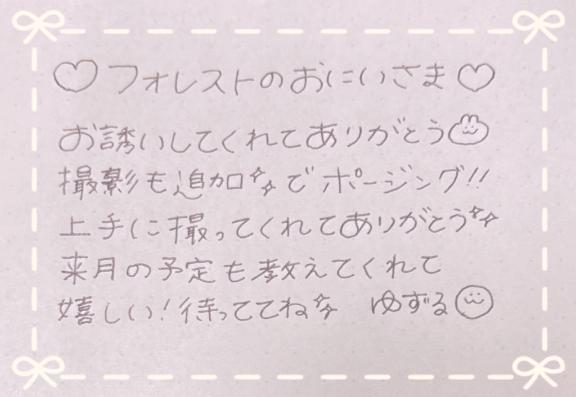 ♡フォレストのおにいさま♡
お誘いしてくれてありがとう
撮影も追加でポージング!!
上手に撮ってくれてありがとう
来月の予定も教えてくれて
嬉しい!待っててね ゆずる